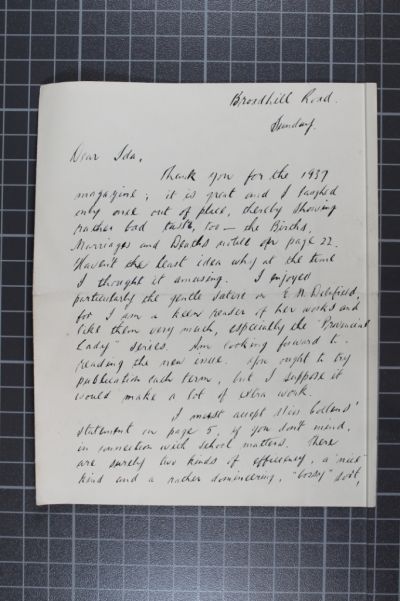 Broadhill Road.
Sunday.
Dear Ida,
Thank you for the 1937
magazine; it is great and I laughed
only once out of place, thereby showing
rather bad taste, too — the Births,
Marriages and Deaths notice on page 22.
Haven't the least idea why at the time
I thought it amusing. I enjoyed
particularly the gentle satire on E M Delafield,
for I am a keen reader of her works and
like them very much, especially the "Provincial
Lady" series. Am looking forward to
reading the new issue. You ought to try
publication each term, but I suppose it
would make a lot of extra work.
I must accept Miss
statement on page 5, if you don't mind,
in connection with school matters. There
are surely two kinds of efficiency, a "nice"
kind and a rather domineering, "bossy" sort,